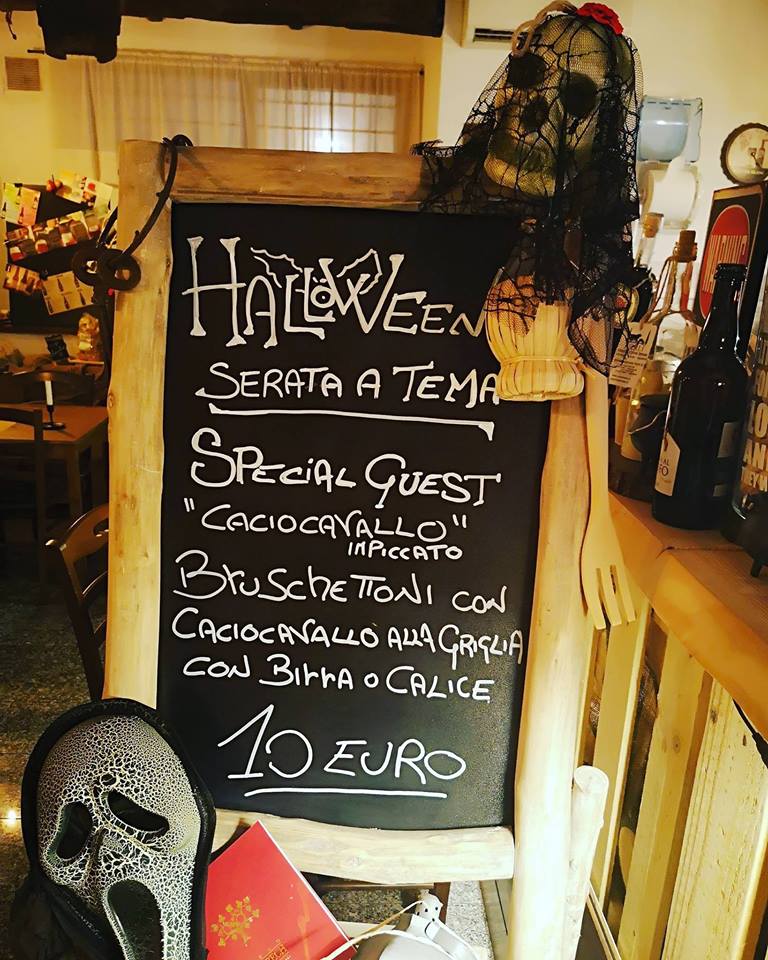 HALLOWEEN
SERATA A TEMA
SPECIAL GUEST
"CACIOCAVALLO"
IMPICCATO
BRUSCHETTONI CON
CACIOCAVALLO ALLA GRIGLIA
CON BIRRA O CALICE
10 EURO
WARNING